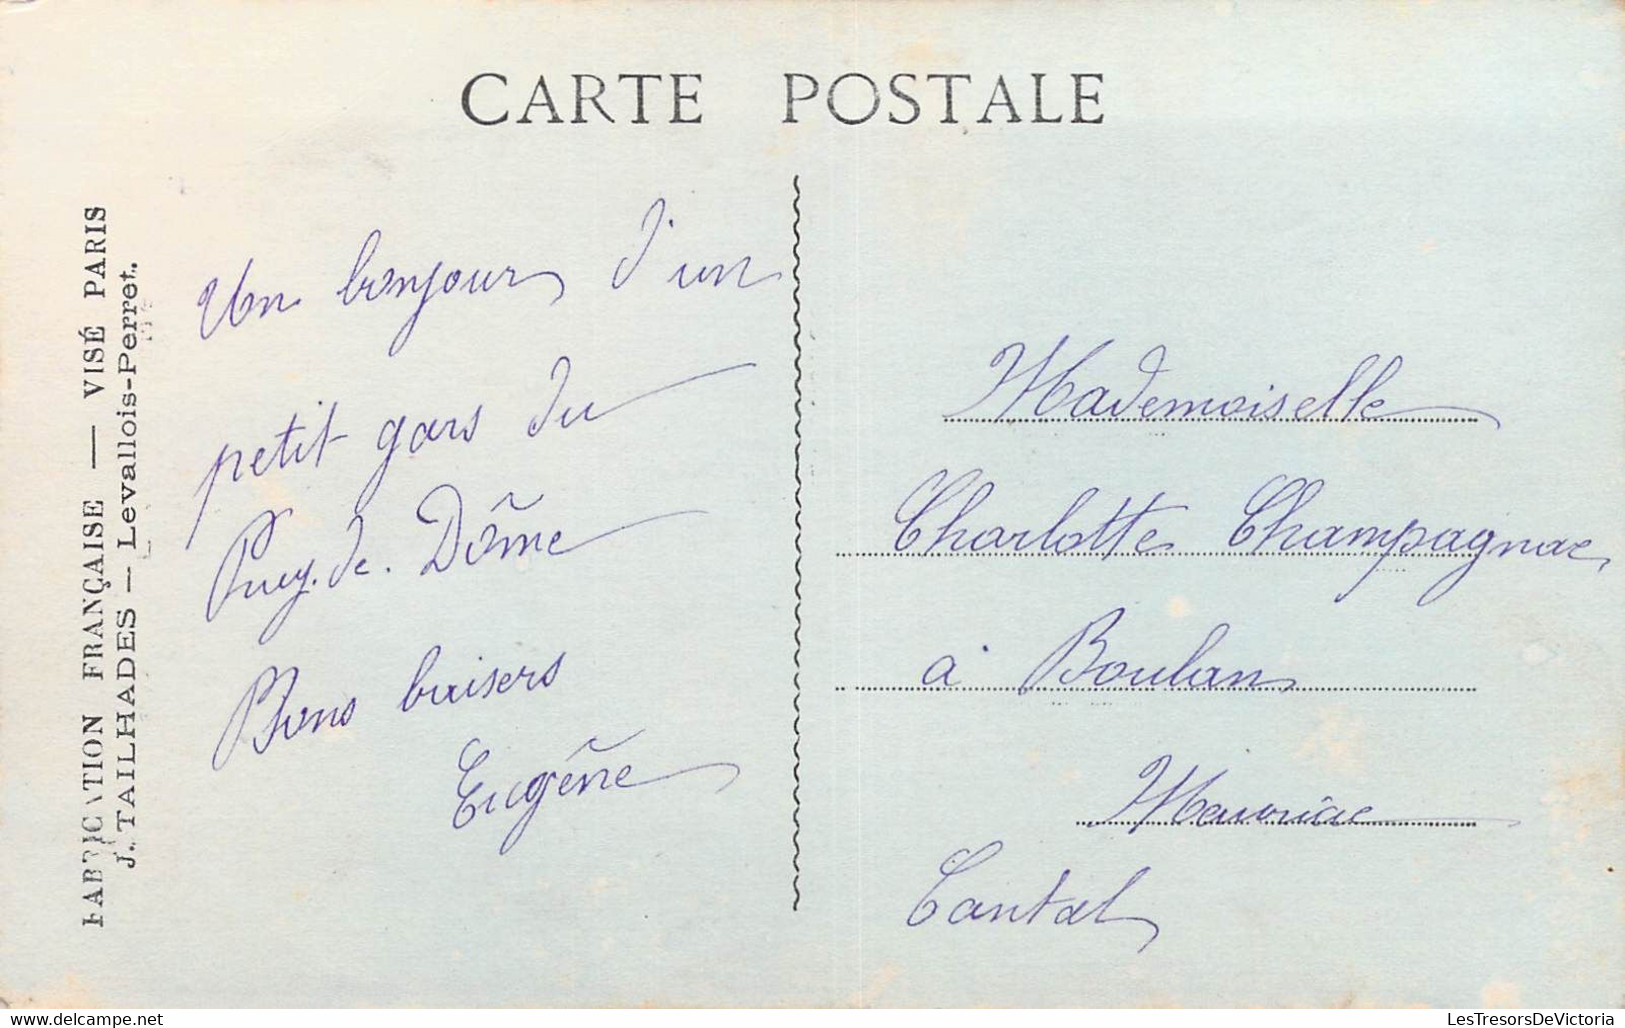 CARTE POSTALE
FABRICATION FRANÇAISE — VISÉ PARIS
J. TAILHADES — Levallois-Perret.
Un bonjour d'un
petit gars du
Puy-de-Dôme
Bons baisers
Eugène
Mademoiselle
Charlotte Champagnac
à Boulan
Mauriac
Cantal
www.delcampe.net
LesTresorsDeVictoria